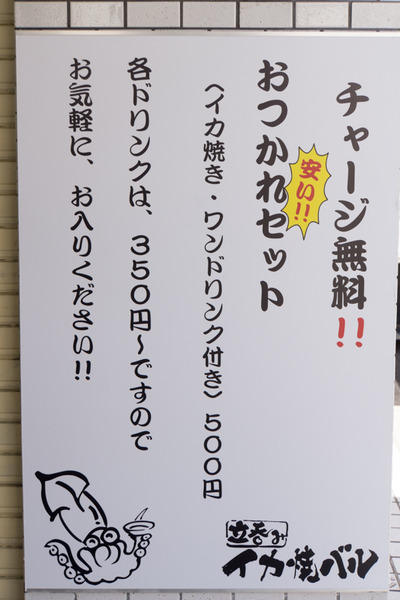 チャージ無料!!
安い!!
おつかれセット
（イカ焼き・ワンドリンク付き）５００円
各ドリンクは、３５０円～ですので
お気軽に、お入りください!!
立呑み
イカ焼バル